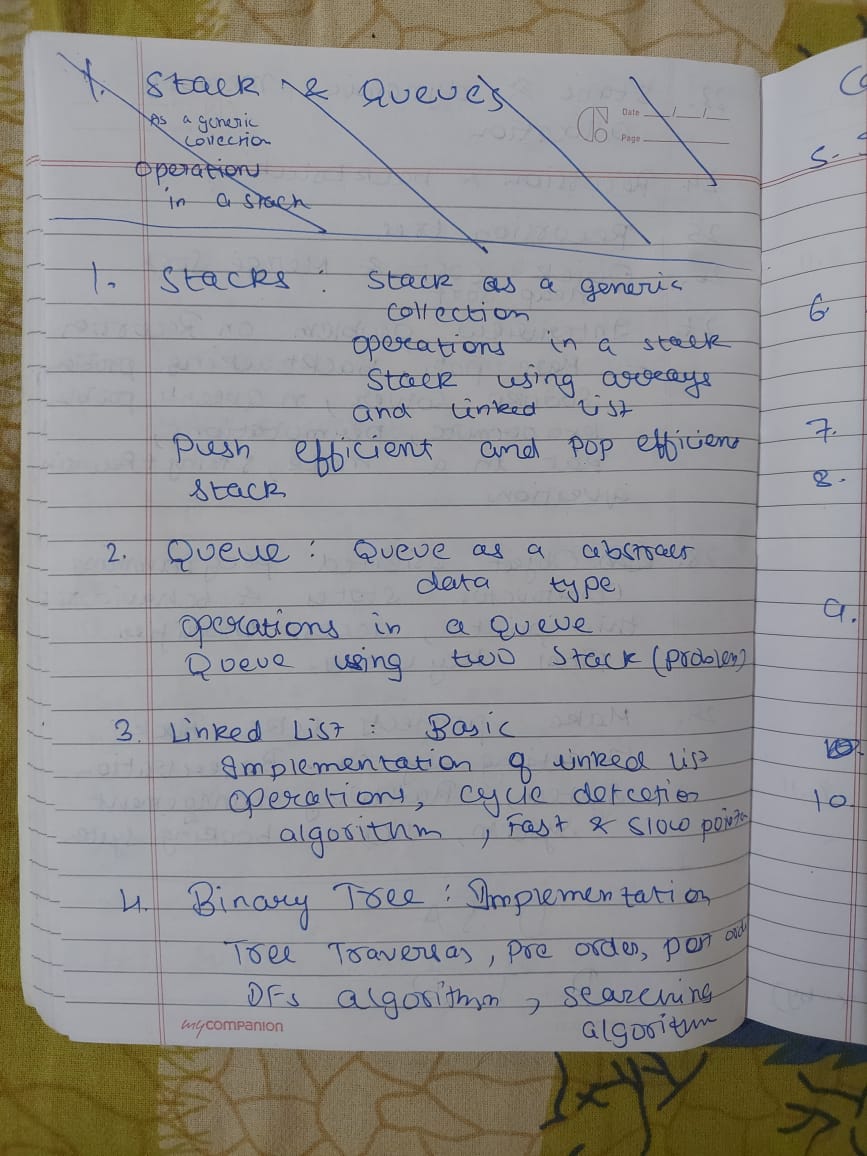 1. Stack & Queues
As a generic
collection
Operation
in a stack
Date __/__/__
Page
1. Stacks : Stack as a generic
collection
operations in a stack
Stack using arrays
and Linked List
Push efficient and Pop efficient
stack
2. Queue : Queue as a abstract
data type
operations in a Queue
Queue using two Stack (problem)
3. Linked List : Basic
Implementation of Linked List
operations, cycle detection
algorithm, Fast & Slow pointer
4. Binary Tree : Implementation
Tree Traversal, pre order, post order
DFS algorithm, searching
algorithm
mycompanion
5.
6
7.
8.
9.
10